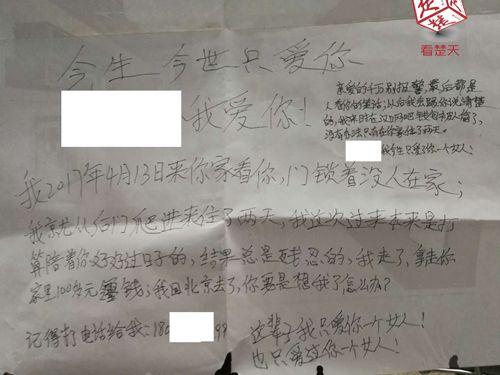 看楚天
今生今世只爱你
我爱你!
亲爱的千万别报警,最后都是
人看你的笑话;以后我会跟你说清楚
的,我来时在汉口网吧钱包被人偷了,
没有办法只有在你家住了两天。
我今生只爱了你一个女人!
我2017年4月13日来你家看你,门锁着没人在家;
我就从后门爬进来住了两天,我这次过来本来是打
算陪着你好好过日子的,结果总是残忍的,我走了,拿走你
家里100多元零钱;我回北京去了,你要是想我了怎么办?
记得打电话给我:18 99
这辈子我只爱你一个女人!
也只爱过你一个女人!